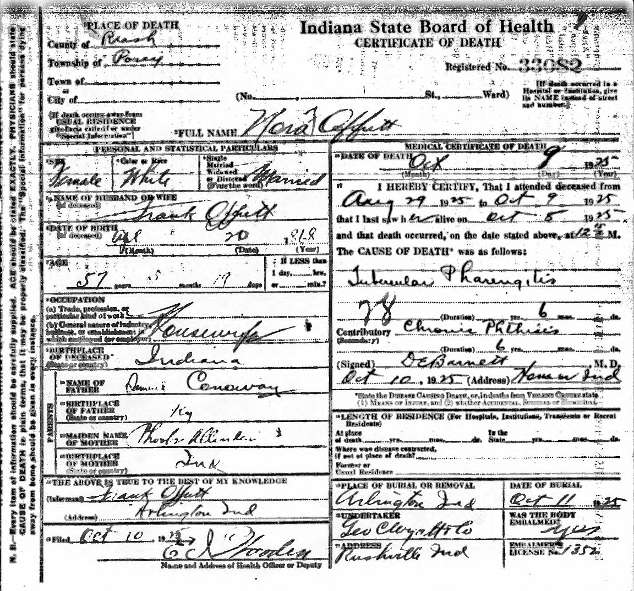 Indiana State Board of Health
CERTIFICATE OF DEATH
PLACE OF DEATH
County of Rush
Township of Posey
Town of
or
City of
Registered No. 33082
(No. St., Ward)
(If death occurred in a Hospital or Institution, give its NAME instead of street and number.)
(If death occurs away from USUAL RESIDENCE give facts called for under "Special Information")
FULL NAME Nora Offutt
PERSONAL AND STATISTICAL PARTICULARS
SEX Color or Race Single Married Widowed or Divorced (For the word)
Female White Married
NAME OF HUSBAND OR WIFE
(If deceased) Frank Offutt
DATE OF BIRTH
(If deceased) 20
(Month) (Date) (Year)
AGE
57 years 5 months 19 days
If LESS than 1 day, hrs. or min.?
OCCUPATION
(a) Trade, profession, or particular kind of work
(b) General nature of industry, business, or establishment in which employed (or employer)
Housewife
BIRTHPLACE OF DECEASED
(State or country) Indiana
PARENTS
NAME OF FATHER Conoway
BIRTHPLACE OF FATHER
(State or country) Ky
MAIDEN NAME OF MOTHER
BIRTHPLACE OF MOTHER
(State or country) Ind
THE ABOVE IS TRUE TO THE BEST OF MY KNOWLEDGE
(Informant) Frank Offutt
(Address) Arlington Ind
Filed Oct 10 1925
Name and Address of Health Officer or Deputy
MEDICAL CERTIFICATE OF DEATH
DATE OF DEATH Oct 9 1925
(Month) (Day) (Year)
I HEREBY CERTIFY, That I attended deceased from
Aug 29 1925 to Oct 9 1925
that I last saw her alive on Oct 8 1925
and that death occurred, on the date stated above, at M.
The CAUSE OF DEATH* was as follows:
Tubercular Pharengitis
28 (Duration) yrs. 6 mo. ds.
Contributory Chronic Phthisis
(Secondary)
(Duration) 6 yrs. mo. ds.
(Signed) M. D.
Oct 10 1925 (Address) Ind
*State the DISEASE CAUSING DEATH, or, in deaths from VIOLENT CAUSES state (1) MEANS OF INJURY; and (2) whether ACCIDENTAL, SUICIDAL, or HOMICIDAL.
LENGTH OF RESIDENCE (For Hospitals, Institutions, Transients or Recent Residents)
At place of death yrs. mos. ds. In the State, yrs. mos. ds.
Where was disease contracted, if not at place of death?
Former or Usual Residence
PLACE OF BURIAL OR REMOVAL DATE OF BURIAL
Arlington Ind Oct 11 1925
UNDERTAKER WAS THE BODY EMBALMED?
Geo C Wyatt & Co yes
ADDRESS EMBALMER'S LICENSE No. 1352
Rushville Ind
N. B.—Every item of information should be carefully supplied. AGE should be stated EXACTLY. PHYSICIANS should state CAUSE OF DEATH in plain terms, that it may be properly classified. The "Special Information" for persons dying away from home should be given in every instance.